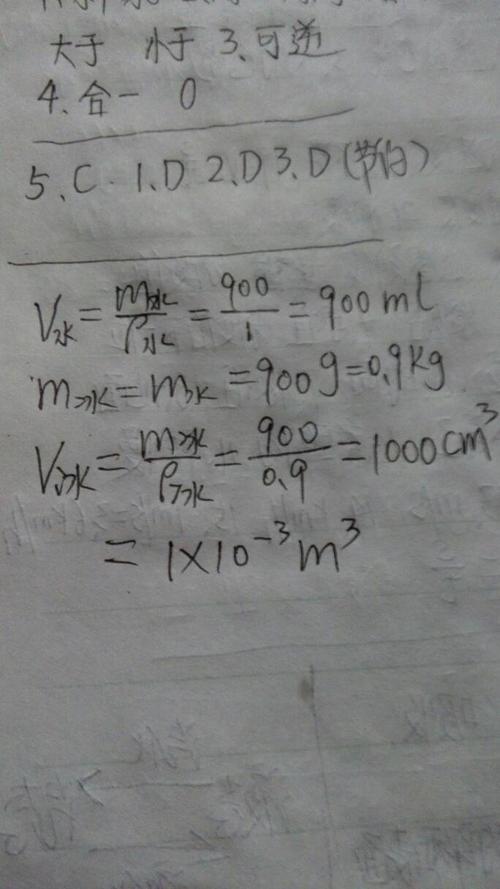 大于 小于 3、可逆
4、合一 0
5、C 1、D 2、D 3、D(节约)
V水=m水/ρ水=900/1=900ml
m冰=m水=900g=0.9kg
V冰=m冰/ρ冰=900/0.9=1000cm³
=1×10⁻³m³